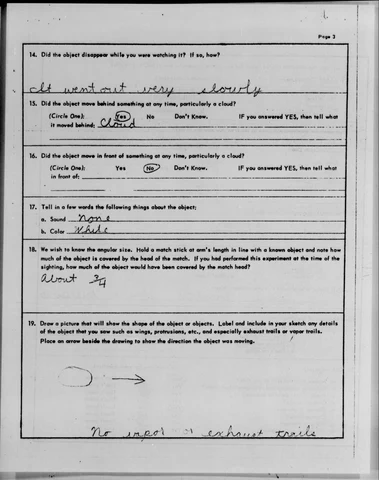 Page 3
14. Did the object disappear while you were watching it? If so, how?
It went out very slowly
15. Did the object move behind something at any time, particularly a cloud?
(Circle One): Yes No Don't Know. IF you answered YES, then tell what
it moved behind: Cloud
16. Did the object move in front of something at any time, particularly a cloud?
(Circle One): Yes No Don't Know. IF you answered YES, then tell what
in front of:
17. Tell in a few words the following things about the object:
a. Sound None
b. Color White
18. We wish to know the angular size. Hold a match stick at arm's length in line with a known object and note
how much of the object is covered by the head of the match. If you had performed this experiment at the time of the
sighting, how much of the object would have been covered by the match head?
About 3/4
19. Draw a picture that will show the shape of the object or objects. Label and include in your sketch any details
of the object that you saw such as wings, protrusions, etc., and especially exhaust trails or vapor trails.
Place an arrow beside the drawing to show the direction the object was moving.
No vapor or exhaust trails